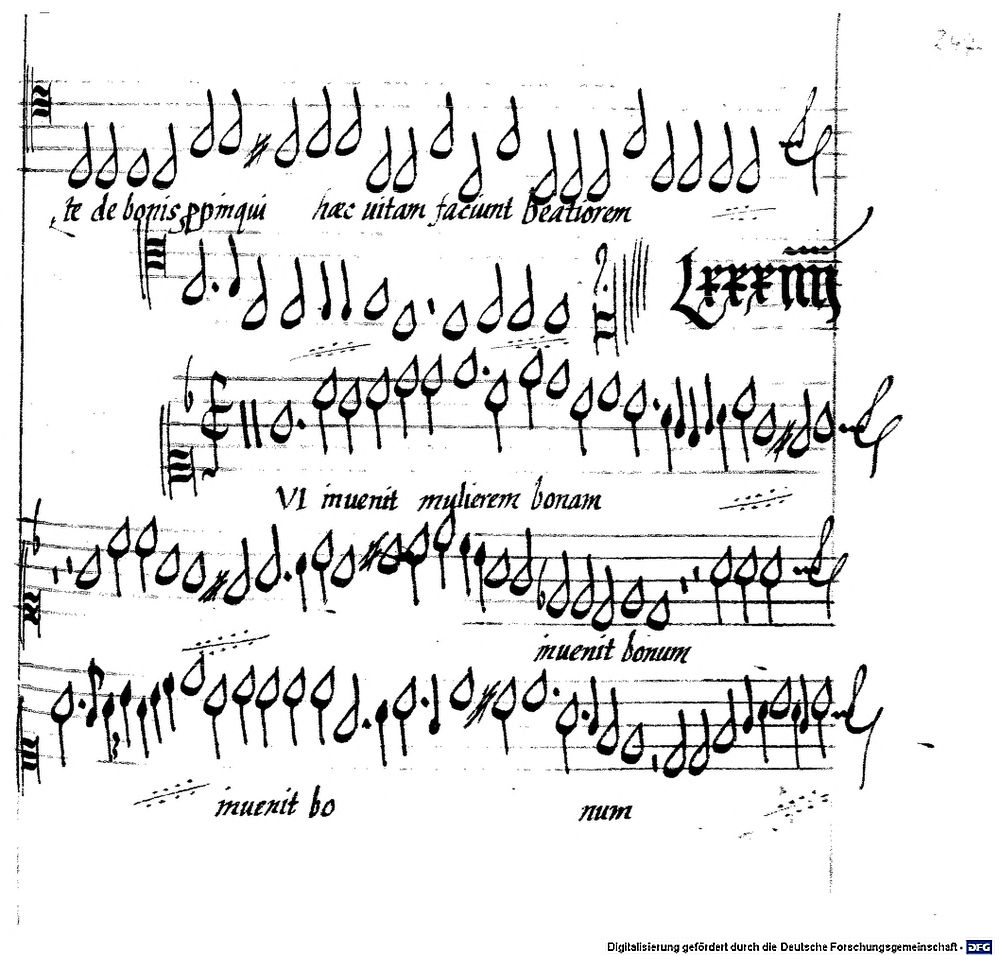 247
te de bonis ppinqui hæc uitam faciunt beatiorem
Lxxxiiij
VI inuenit mulierem bonam
inuenit bonum
inuenit bo num
Digitalisierung gefördert durch die Deutsche Forschungsgemeinschaft - DFG